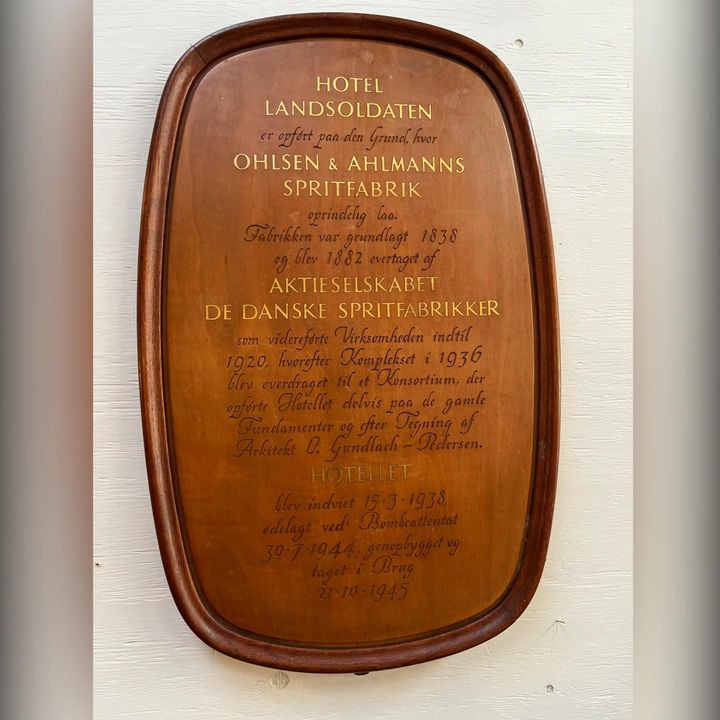 HOTEL
LANDSOLDATEN
er opført paa den Grund, hvor
OHLSEN & AHLMANNS
SPRITFABRIK
oprindelig laa.
Fabrikken var grundlagt 1838
og blev 1882 overtaget af
AKTIESELSKABET
DE DANSKE SPRITFABRIKKER
som videreførte Virksomheden indtil
1920, hvorefter Komplekset i 1936
blev overdraget til et Konsortium, der
opførte Hotellet delvis paa de gamle
Fundamenter og efter Tegning af
Arkitekt O. Gundlach-Pedersen.
HOTELLET
blev indviet 15·3·1938,
ødelagt ved Bombeattentat
30·7·1944, genopbygget og
taget i Brug
21·10·1945